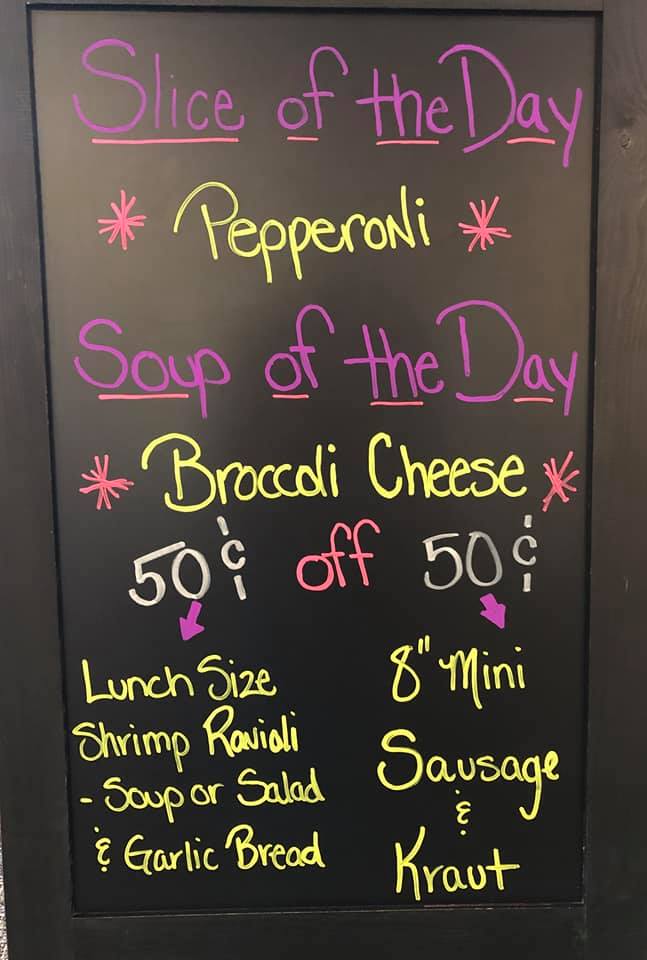 Slice of the Day
* Pepperoni *
Soup of the Day
* Broccoli Cheese *
50¢ off 50¢
Lunch Size
Shrimp Ravioli
- Soup or Salad
& Garlic Bread
8" Mini
Sausage
&
Kraut